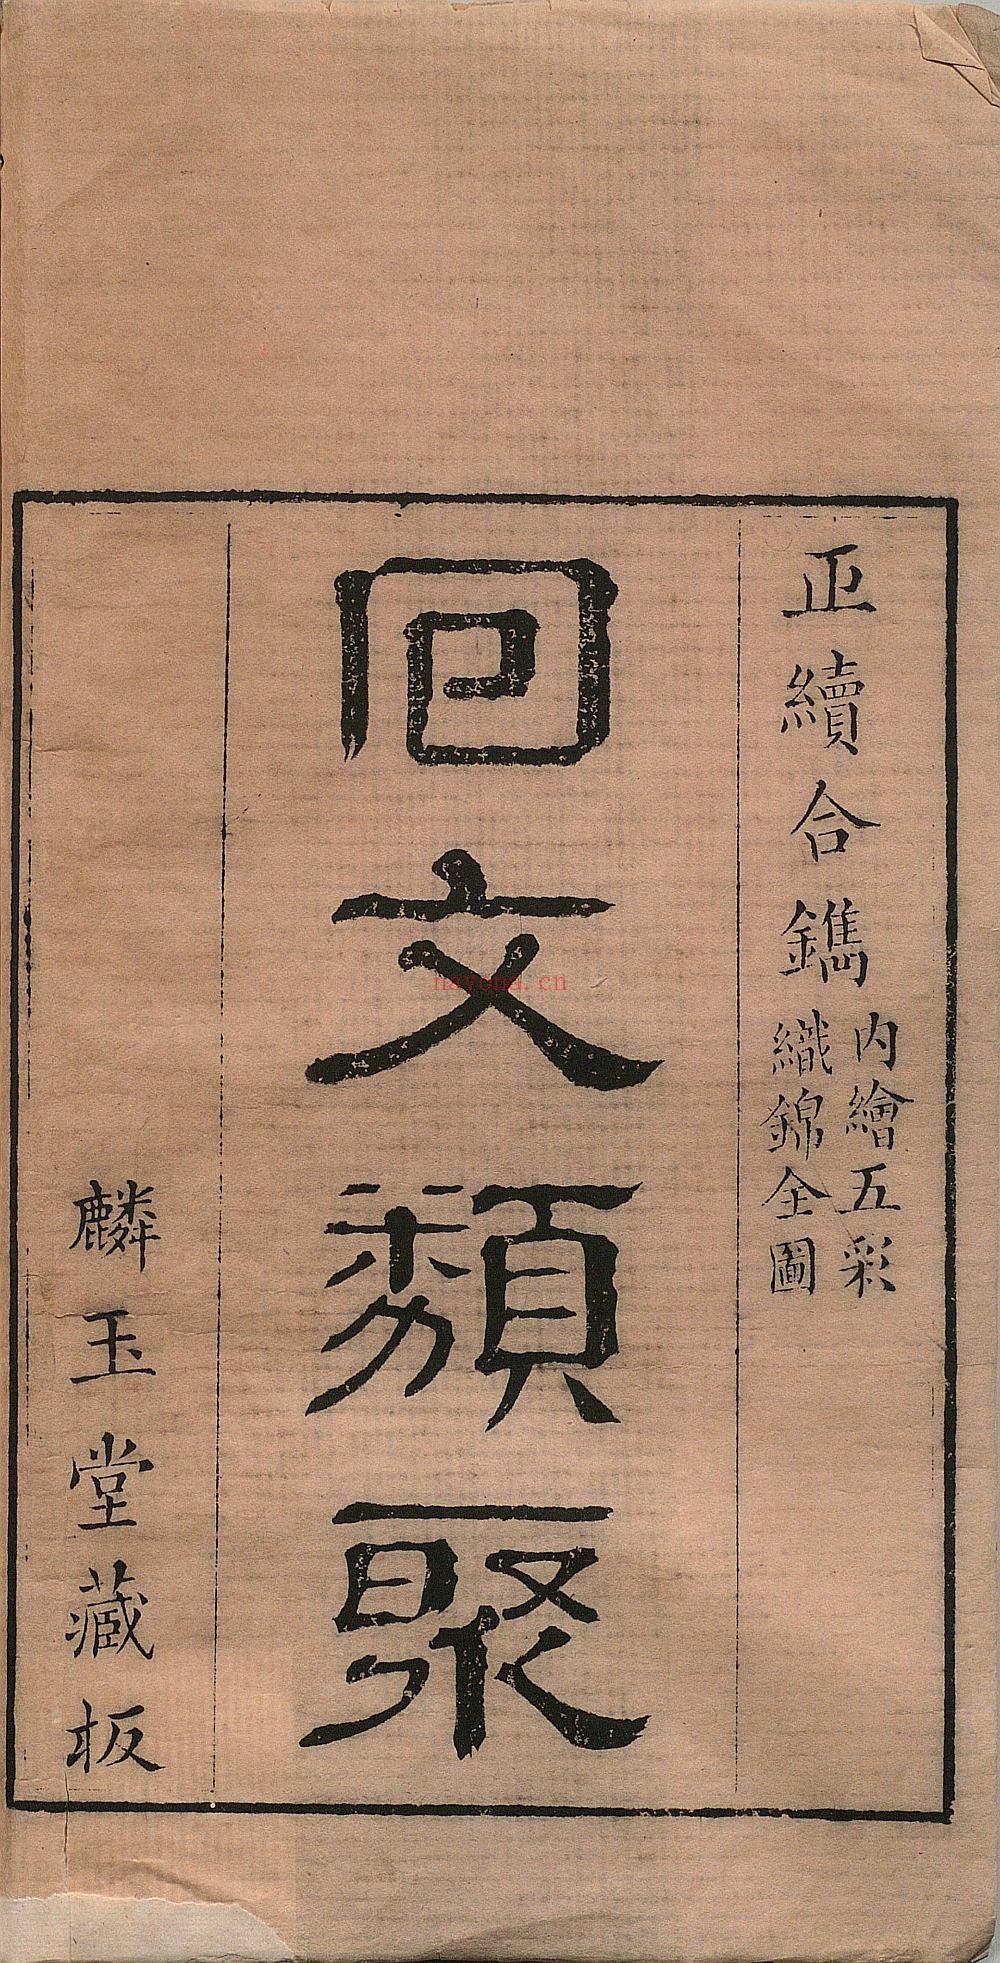 正續合鐫
内繪五彩
織錦全圖
回文類聚
麟玉堂藏板
nayona.cn